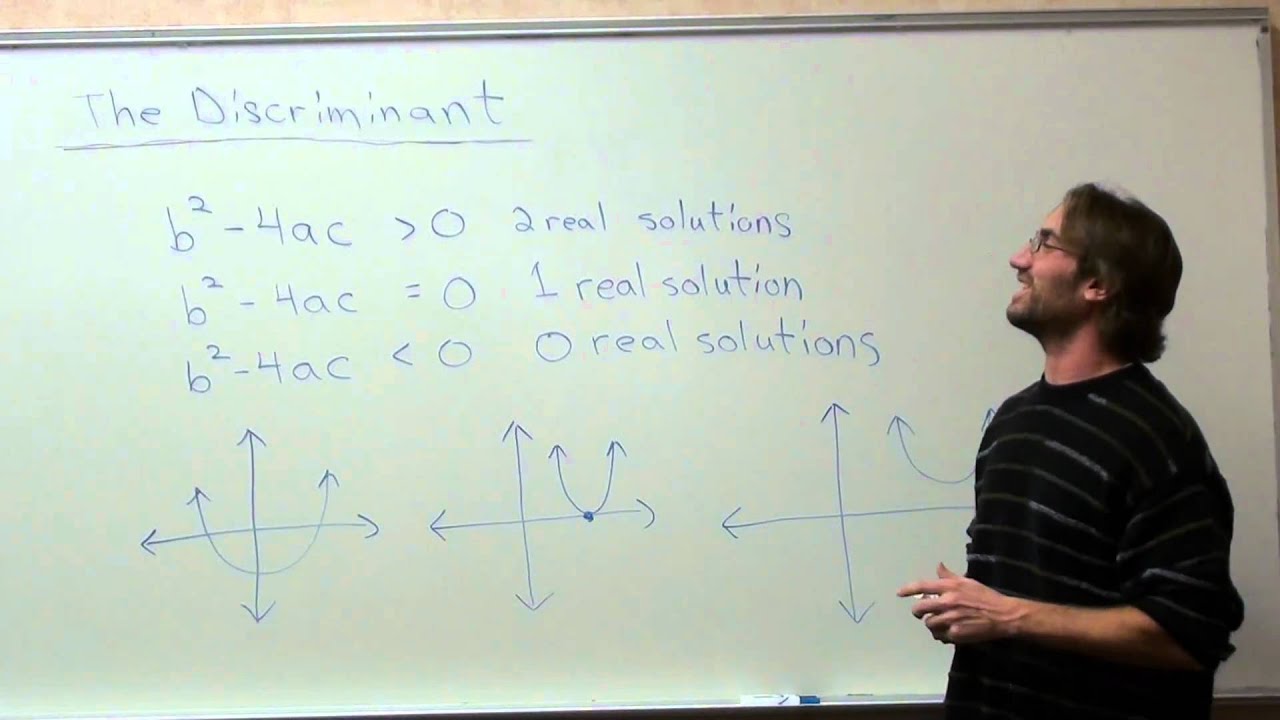 The Discriminant
b² - 4ac > 0 2 real solutions
b² - 4ac = 0 1 real solution
b² - 4ac < 0 0 real solutions